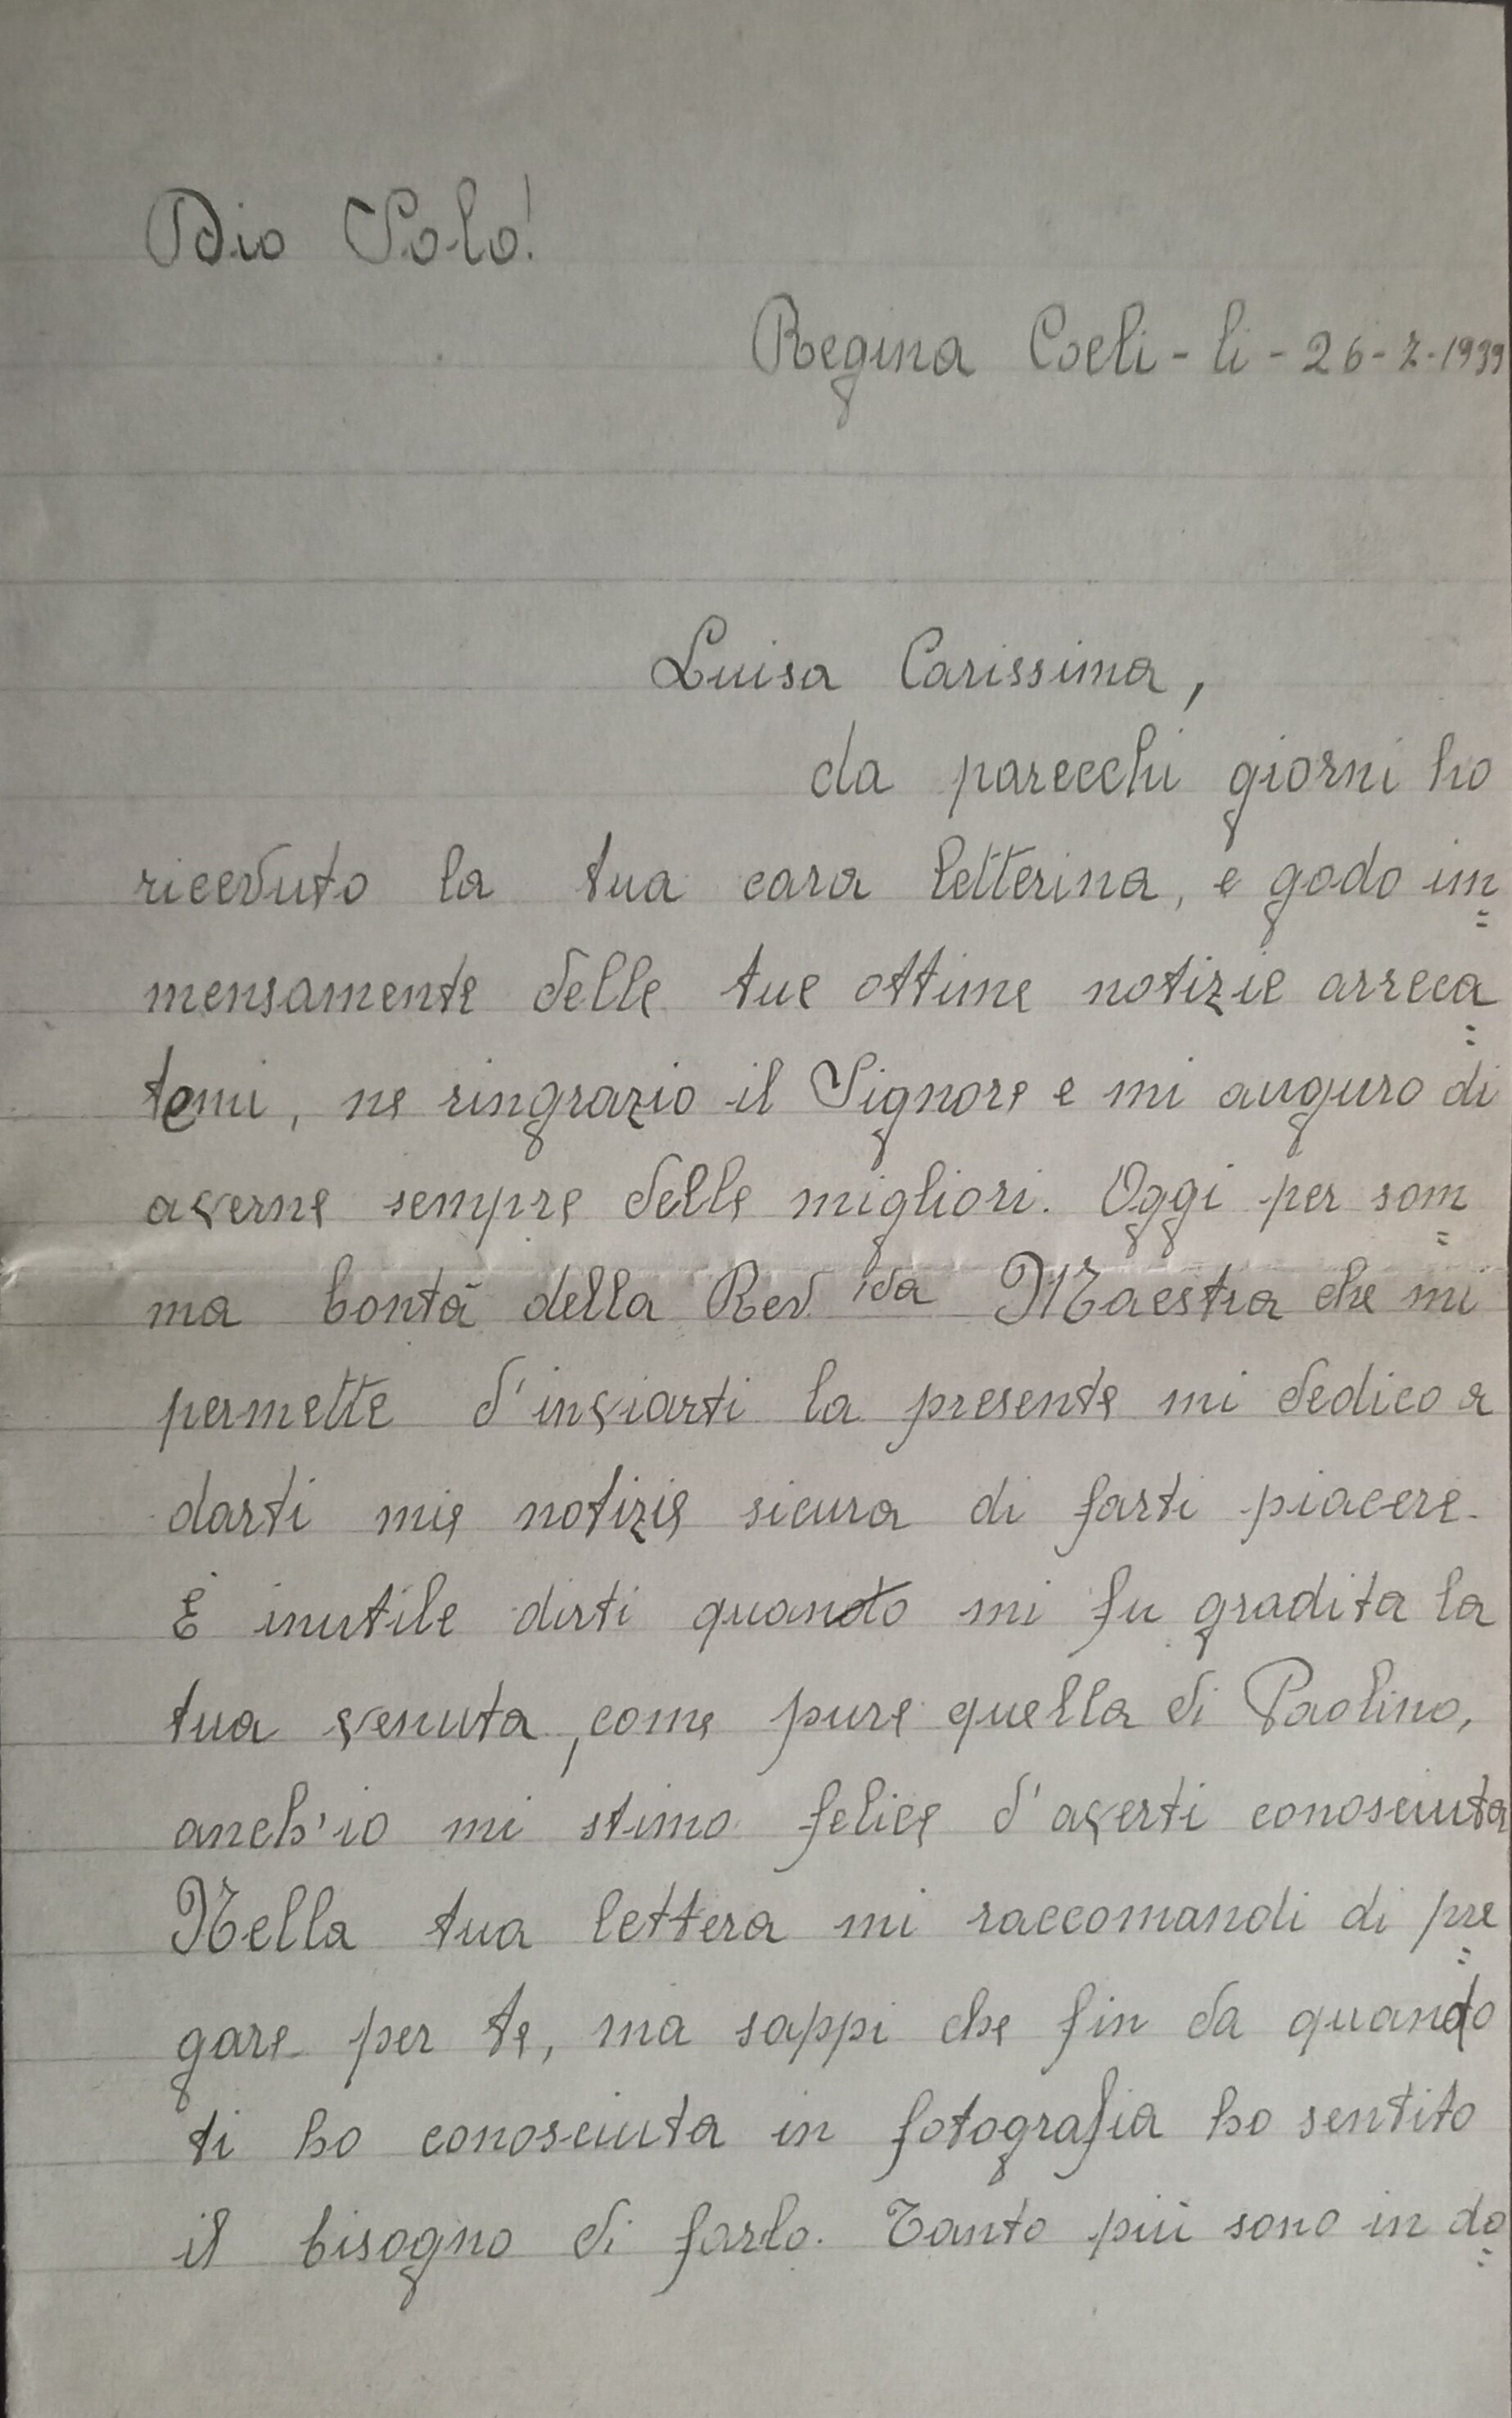 Dio Solo!
Regina Coeli - li - 26-7-1939
Luisa Carissima,
da parecchi giorni ho
ricevuto la tua cara letterina, e godo im=
mensamente delle tue ottime notizie arreca=
temi, ne ringrazio il Signore e mi auguro di
averne sempre delle migliori. Oggi per som=
ma bontà della Rev.da Maestra che mi
permette d'inviarti la presente mi dedico a
darti mie notizie sicura di farti piacere.
È inutile dirti quanto mi fu gradita la
tua venuta, come pure quella di Paolino,
anch'io mi stimo felice d'averti conosciuta
Nella tua lettera mi raccomandi di pre=
gare per te, ma sappi che fin da quando
ti ho conosciuta in fotografia ho sentito
il bisogno di farlo. Tanto più sono in do=